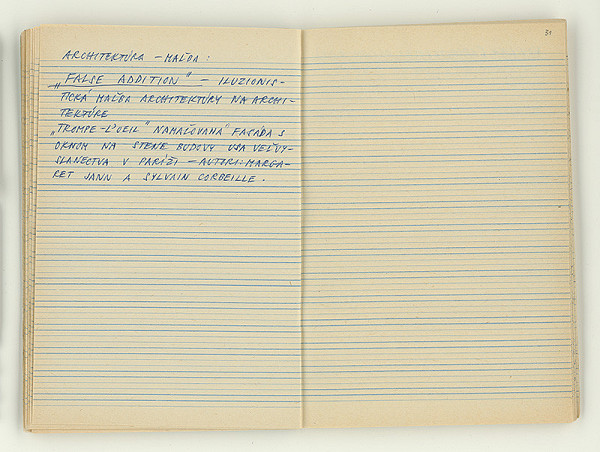 ARCHITEKTÚRA – MAĽBA :
„FALSE ADDITION" – ILUZIONIS-
TICKÁ MAĽBA ARCHITEKTÚRY NA ARCHI-
TEKTÚRE
„TROMPE-L'OEIL" NAMAĽOVANÁ FASÁDA S
OKNOM NA STENE BUDOVY USA VEĽVY-
SLANECTVA V PARÍŽI – AUTORI: MARGA-
RET JANN A SYLVAIN CORBEILLE.